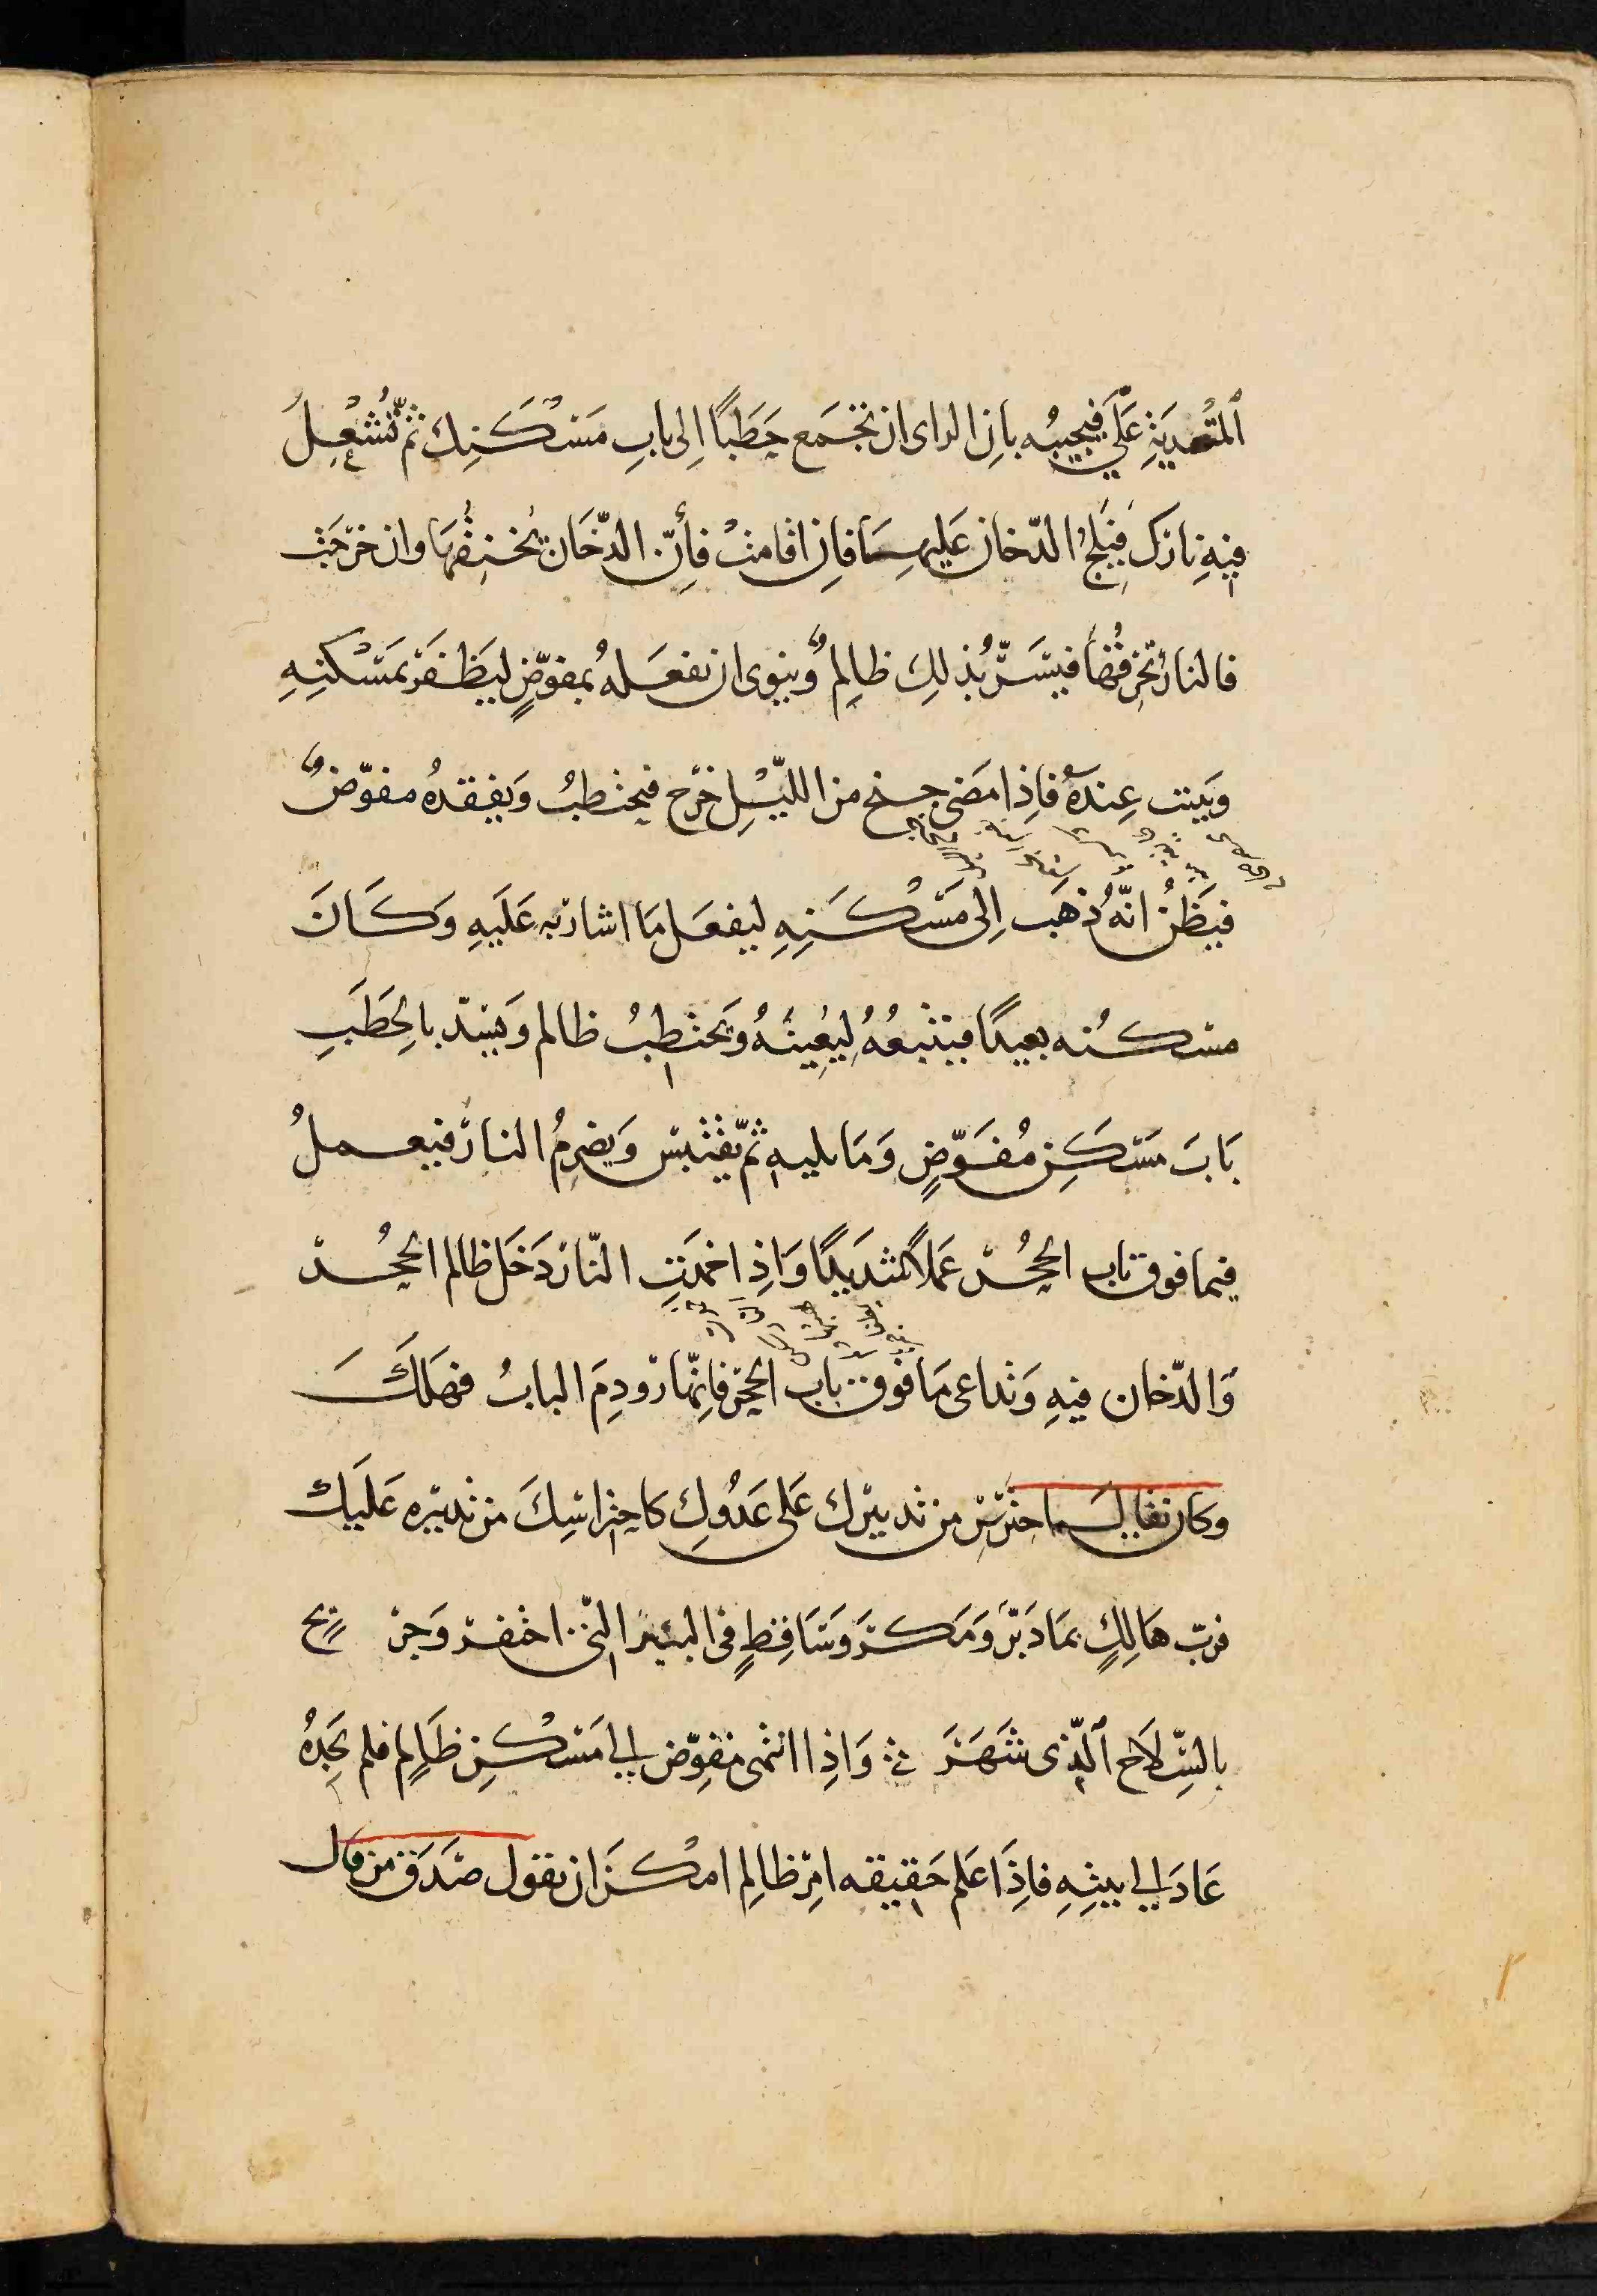 ٱلمتُعدِيَةِ عَلَيَّ فيُجِيبُه بانِ الراى ان تجمَع حَطَبًا اِلى بابِ مَسْكَنِك ثمّ تُشْعِلُ
فيهِ نارَك فيَلجُ الدّخان عَليهِمَا فاِن اقامتْ فأِنّ الدّخَان يخنِقُهَا وان خرَجَت
فالنارُ تحْرِقُهَا فيُسَرّ بذلِكَ ظالِمٌ وينوى ان يفعَلهُ بمفوّضٍ ليَظفَر بمَسْكنِهِ
وَيَبيت عِندَهُ فاذِا مَضى جنح من الليّلِ خرَج فيحتطبُ وَيَفقدُه مفوّضٌ
فيَظُن انّهُ ذهَب اِلى مَسْكَنِهِ ليفعَل مَا اشار به عَلَيهِ وَكَانَ
مسْكنُه بعيدًا فيتْبعُهُ لِيُعِينَهُ وَيحتطِبُ ظالم وَيَسُدّ بالحطَبِ
بَابَ مَسْكَنِ مُفَوّضٍ وَمَا يليهِ ثمّ يَقتبسْ وَيضرِمُ النارَ فيعملُ
فيما فوق باب الجُحْر عَملاً شديدًا وَاذِا خمدَتِ النّارُ دَخَل ظالم الجُحْر
وَالدّخان فيهِ وَتداعى مَا فوق باب الجُحْر فاِنّهارَ ورُدِمَ البابُ فهَلَكَ
وكان يقال احترِسْ من تدبيْرك عَلى عَدُوِكِ كاحِتِراسِكَ من تدبيره عَلَيكَ
فربّ هَالِكٍ بمَا دَبّرَ وَمَكَرَ وَسَاقِطٍ فى البئر التى احتفرَ وَجرِيحٍ
بالسِّلاَحِ ٱلّذى شَهَرَ وَاذِا انتهى مفوِّض الى مَسْكنِ ظَالِمٍ فلم يَجِدهُ
عَادَ الى بيتِهِ فاذِا علم حَقيقه امْرِ ظالِم امْكنَ ان يقول صَدَق من قال